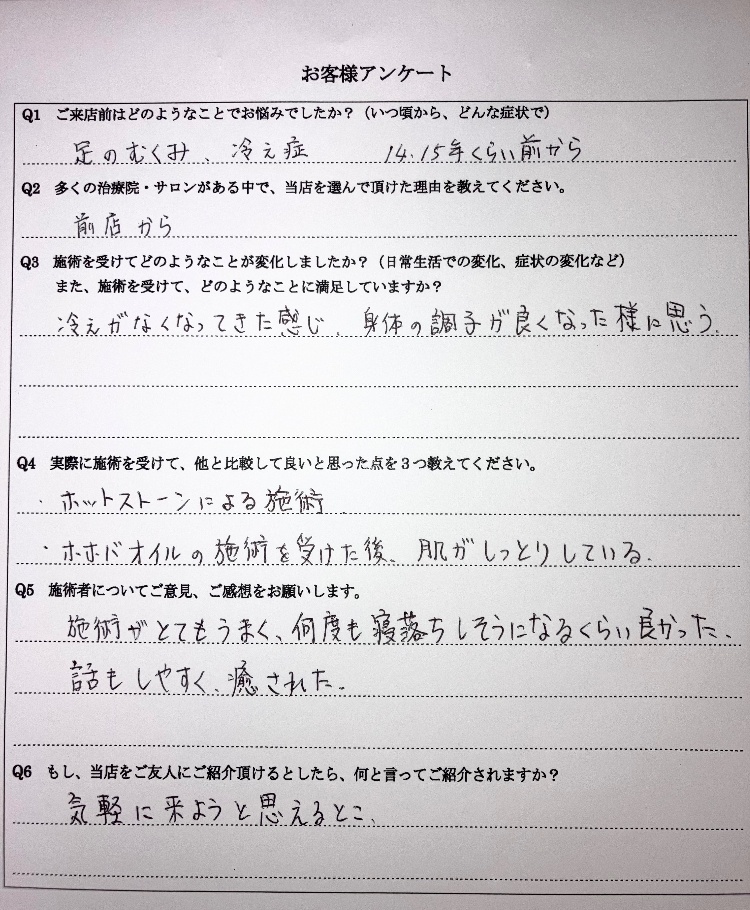 お客様アンケート
Q1 ご来店前はどのようなことでお悩みでしたか？（いつ頃から、どんな症状で）
足のむくみ、冷え症 14.15年くらい前から
Q2 多くの治療院・サロンがある中で、当店を選んで頂けた理由を教えてください。
前店から
Q3 施術を受けてどのようなことが変化しましたか？（日常生活での変化、症状の変化など）
また、施術を受けて、どのようなことに満足していますか？
冷えがなくなってきた感じ、身体の調子が良くなった様に思う。
Q4 実際に施術を受けて、他と比較して良いと思った点を３つ教えてください。
・ホットストーンによる施術
・ホホバオイルの施術を受けた後、肌がしっとりしている。
Q5 施術者についてご意見、ご感想をお願いします。
施術がとてもうまく、何度も寝落ちしそうになるくらい良かった。
話もしやすく、癒された。
Q6 もし、当店をご友人にご紹介頂けるとしたら、何と言ってご紹介されますか？
気軽に来ようと思えるとこ、